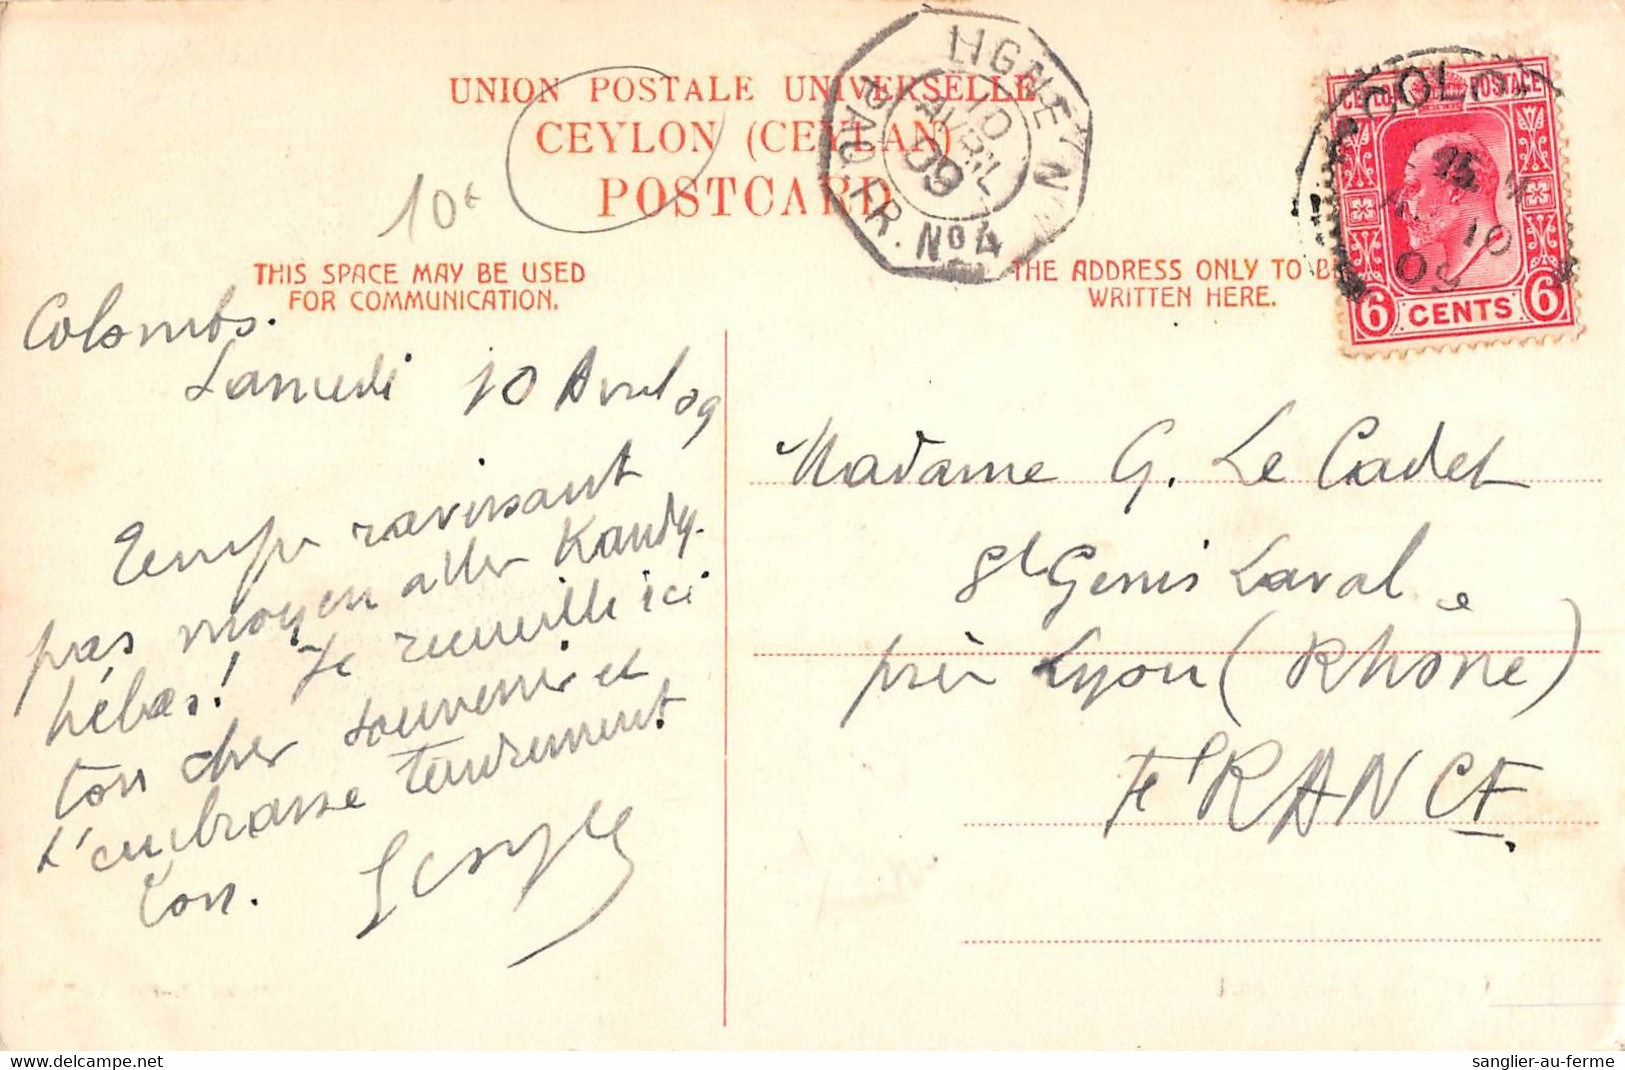 UNION POSTALE UNIVERSELLE
CEYLON (CEYLAN)
POSTCARD
LIGNE N
PAQ. FR. Nº 4
10
AVRIL
09
CEYLON POSTAGE
COLO
10
09
6 CENTS 6
10€
THIS SPACE MAY BE USED
FOR COMMUNICATION.
THE ADDRESS ONLY TO B
WRITTEN HERE.
Colombo.
Samedi 10 Avril 09
Temps ravissant
pas moyen aller Kandy.
hélas! Je recueille ici
ton cher souvenir et
t'embrasse tendrement
Ton.
Madame G. Le Cadet
St Genis Laval
près Lyon (Rhône)
FRANCE
delcampe.net
sanglier-au-ferme